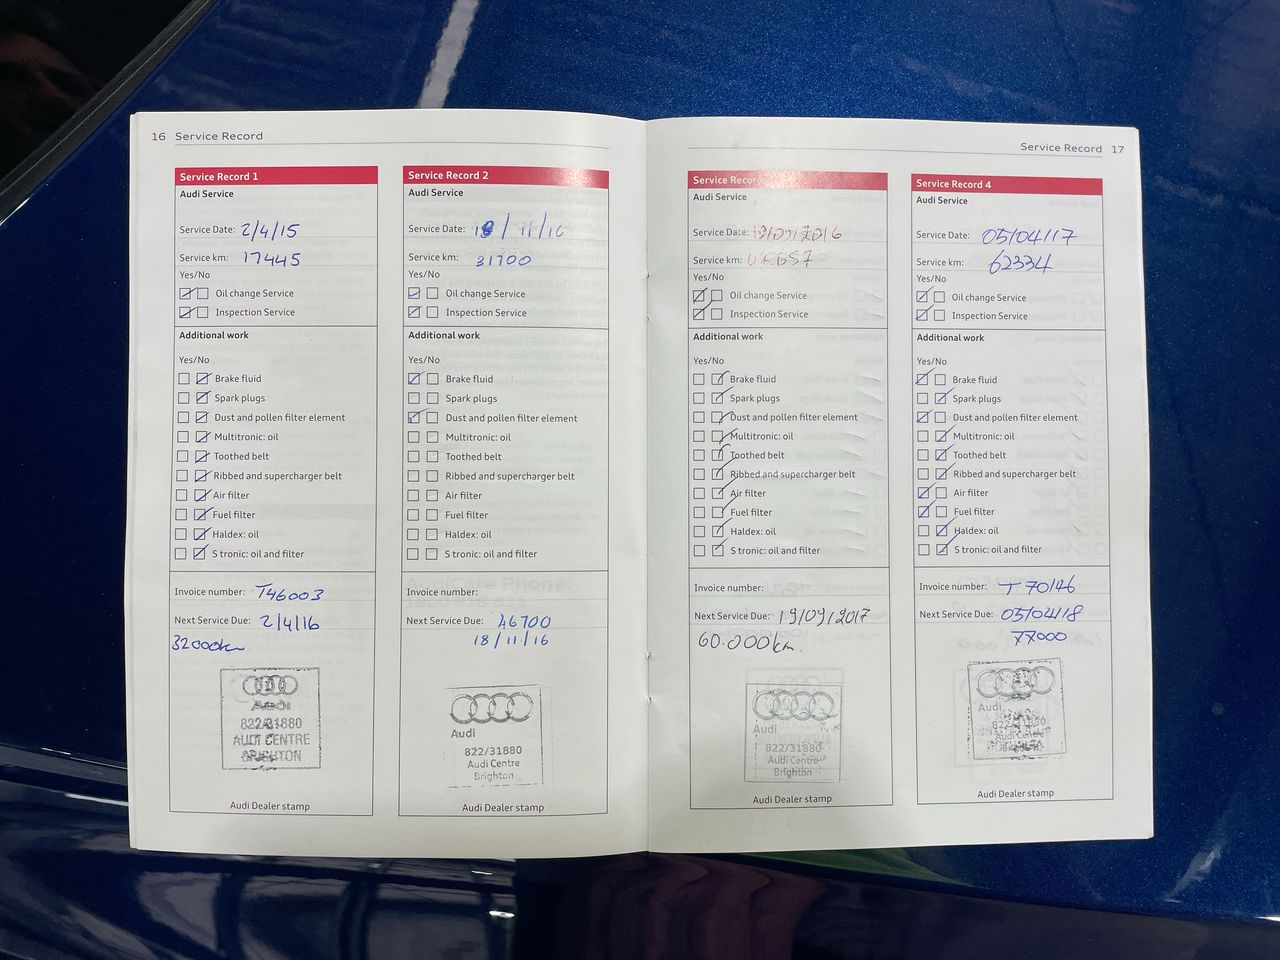 16 Service Record
Service Record 1
Audi Service
Service Date: 2/4/15
Service km: 17445
Yes/No
Oil change Service
Inspection Service
Additional work
Yes/No
Brake fluid
Spark plugs
Dust and pollen filter element
Multitronic: oil
Toothed belt
Ribbed and supercharger belt
Air filter
Fuel filter
Haldex: oil
S tronic: oil and filter
Invoice number: T46003
Next Service Due: 2/4/16
32000km
Audi
822/31880
AUDI CENTRE
BRIGHTON
Audi Dealer stamp
Service Record 2
Audi Service
Service Date: 18/11/16
Service km: 31700
Yes/No
Oil change Service
Inspection Service
Additional work
Yes/No
Brake fluid
Spark plugs
Dust and pollen filter element
Multitronic: oil
Toothed belt
Ribbed and supercharger belt
Air filter
Fuel filter
Haldex: oil
S tronic: oil and filter
Invoice number:
Next Service Due: 46700
18/11/16
Audi
822/31880
Audi Centre
Brighton
Audi Dealer stamp
Service Record 17
Service Record
Audi Service
Service Date: 19/09/2016
Service km:
Yes/No
Oil change Service
Inspection Service
Additional work
Yes/No
Brake fluid
Spark plugs
Dust and pollen filter element
Multitronic: oil
Toothed belt
Ribbed and supercharger belt
Air filter
Fuel filter
Haldex: oil
S tronic: oil and filter
Invoice number:
Next Service Due: 19/09/2017
60.000km.
Audi
822/31880
Audi Centre
Brighton
Audi Dealer stamp
Service Record 4
Audi Service
Service Date: 05/04/17
Service km: 62334
Yes/No
Oil change Service
Inspection Service
Additional work
Yes/No
Brake fluid
Spark plugs
Dust and pollen filter element
Multitronic: oil
Toothed belt
Ribbed and supercharger belt
Air filter
Fuel filter
Haldex: oil
S tronic: oil and filter
Invoice number: T 70146
Next Service Due: 05/04/18
77000
Audi
822/31880
Audi Centre
Audi Dealer stamp